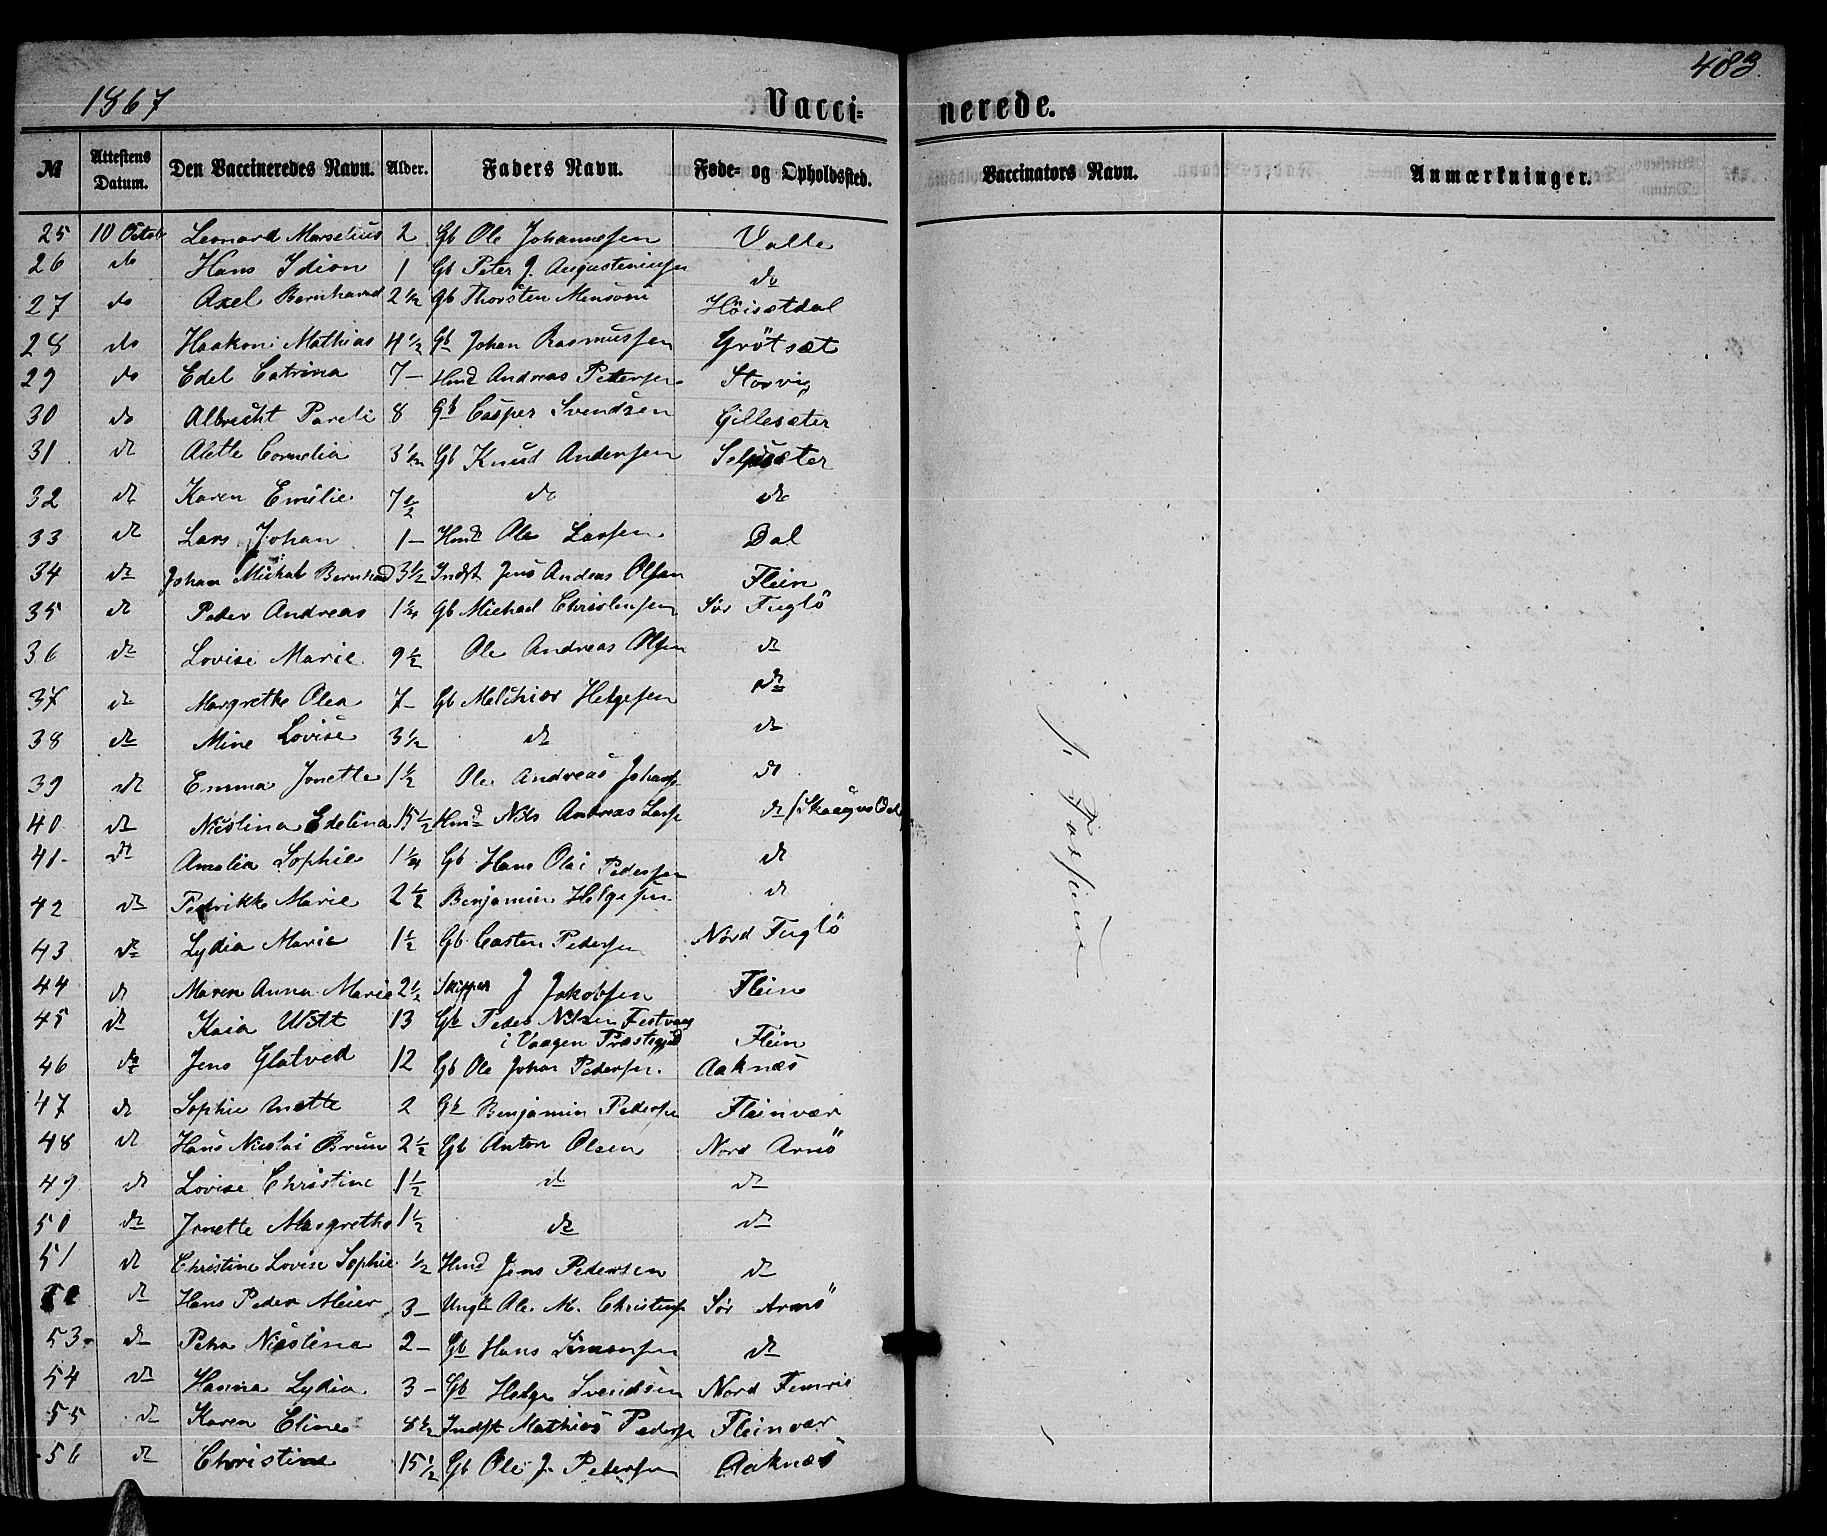 1867 Vacci= nerede. 483.
№ Attestens Datum. Den Vaccineredes Navn. Alder. Faders Navn. Føde= og Opholdssted. Vaccinators Navn. Anmærkninger.
25 10 Octob Leonard Marselius 2 Gb Ole Johannesen Valle
26 do Hans Idion 1 Gb Peter J. Augustinusen do
27 do Axel Bernhard 2 1/2 Gb Thorsten Monsen Höisetdal
28 do Haakon Mathias 4 1/2 Gb Johan Rasmussen Grötsæt
29 do Edel Catrina 7 – Hmd Andreas Pettersen Storvig
30 do Albrecht Pareli 8 Gb Casper Svendsen Gillesæter
31 do Alette Cornelia 3 1/2 Gb Knud Andersen
32 do Karen Emilie 7 1/2 do do
33 do Lars Johan 1 – Hmd Ole Larsen. Dal
34 do Johan Mickal Bernhard 3 1/2 Indst Jens Andreas Olsen Flein
35 do Peder Andreas 1 1/4 Gb Michael Christensen Sör Fuglö
36 do Lovise Marie 9 1/2 Ole Andreas Olsen do
37 do Margrethe Olea 7 – Gb Melchior Helgesen do
38 do Mine Lovise 3 1/2 do do
39 do Emma Jonette 1 1/2 Ole Andreas Johans do
40 do Nicolina Edelina 15 1/2 Hmd Nils Andreas Lars do (Skaugvolldal
41 do Amalia Sophie 1 1/4 Gb Hans Olai Pedersen do
42 do Pedrikke Marie 2 1/2 Benjamin Helgesen do
43 do Lydia Marie 1 1/2 Gb Casten Pedersen Nord Fuglö
44 do Maren Anna Marie 2 1/2 Skipper J Jakobsen Flein
45 do Kaia Witt 13 Gb Peder Nilsen Festvaag
i Vaagen Præstegjeld Flein
46 do Jens Glatved 12 Gb Ole Johan Pedersen. Aaknæs
47 do Sophie Anette 2 Gb Benjamin Peders Fleinvær
48 do Hans Nicolai Bruun 2 1/2 Gb Anton Olsen Nord Arnö
49 do Lovise Christine 1 1/2 do do
50 do Jonette Margrethe 1 1/2 do do
51 do Christine Lovise Sophie 1/2 Hmd Jens Pedersen do
52 do Hans Peder Meier 3 – Ungk Ole M. Christens Sör Arnö
53 do Petra Nicolina 2 – Gb Hans Simonsen do
54 do Hanna Lydia 3 – Gb Helge Svendsen Nord Femris
55 do Karen Eline 8 1/2 Indst Mathias Peders Fleinvær
56 do Christine 15 1/2 Gb Ole J. Petersen Aaknæs